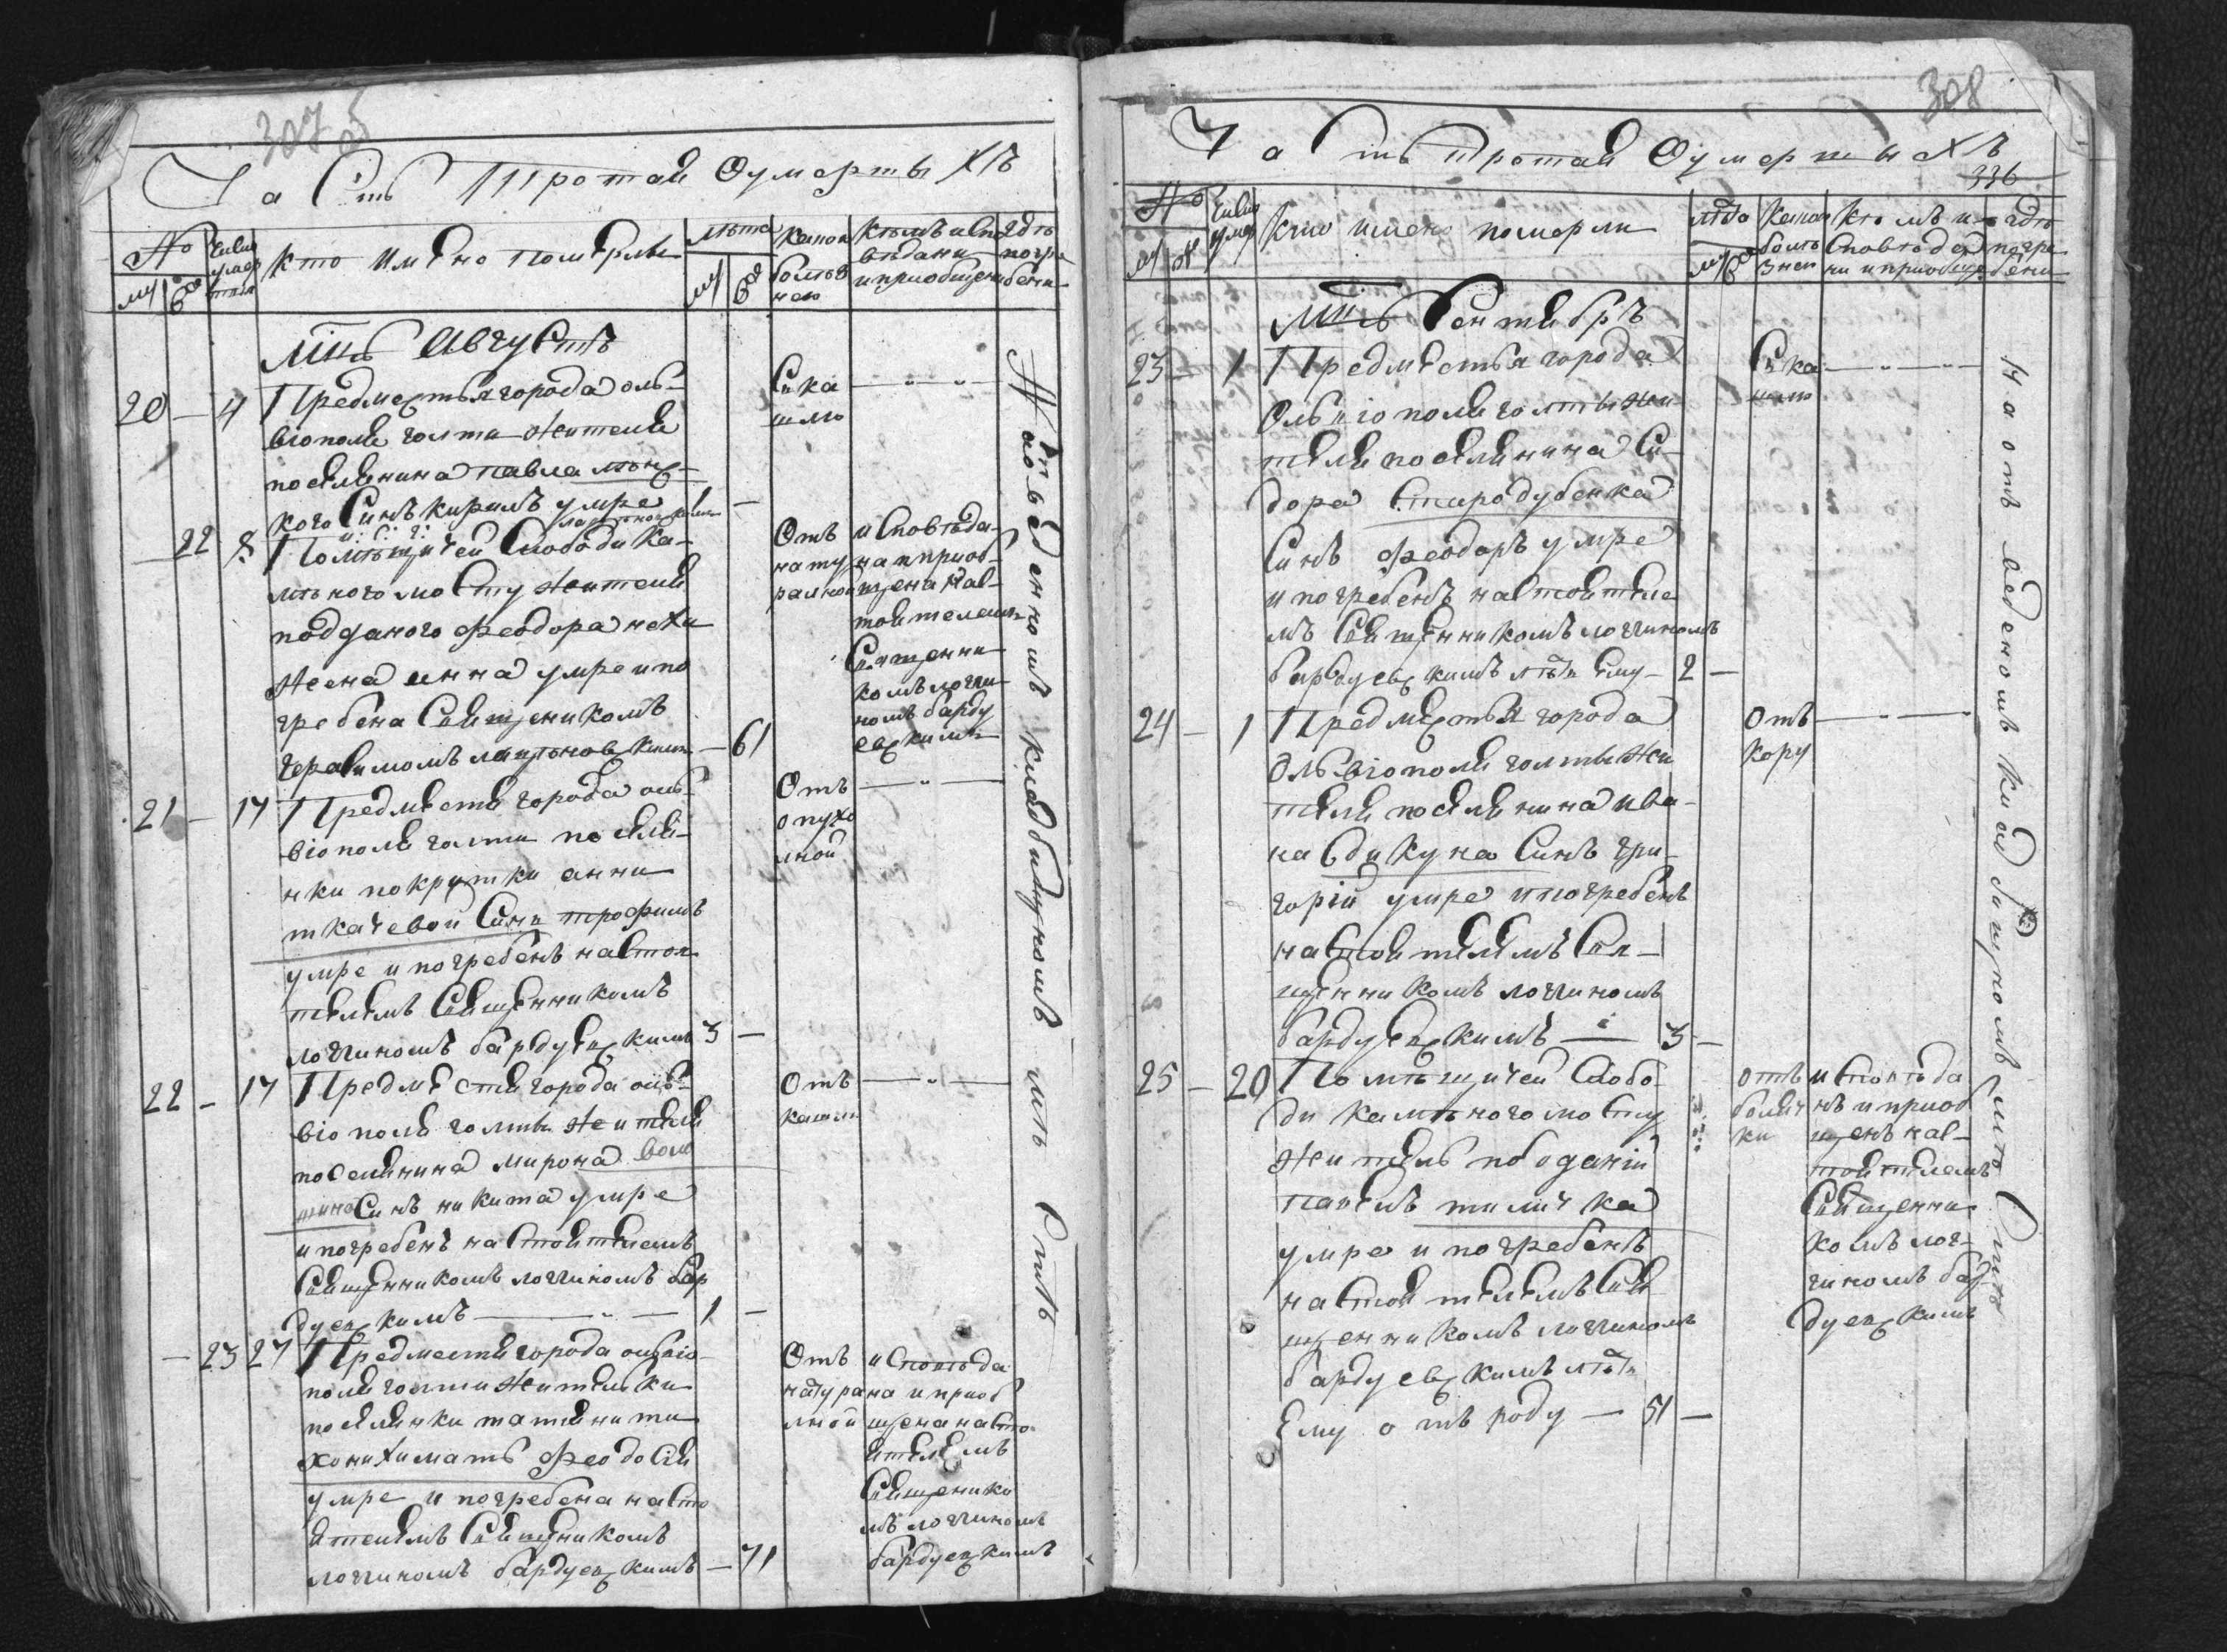 307 об
Часть Третая Оумертыхъ
№
Число умертия
Кто Имено померлы
лѣта
какою болѣзнею
кѣмъ исповѣдани и приобщени
гдѣ погребени
Мць Августъ
20 — 4
Предместья города оль-
віополя голти жителя
поселянина павла
кого Синъ кирилъ умре
1 —
Сухо
22 8
Помѣщичей Слободи Ка-
мѣного мосту жителя
подданого феодора
жена анна умре и по
гребена Священикомъ
герасимомъ
— 61
Отъ
натуралной
исповѣда-
на и приоб-
щена нас-
тоителемъ
Священни-
комъ логги-
номъ барду
евскимъ
21 — 17
Предместя города оль-
віополя голти поселя-
нки покрутки анни
ткачевой Синъ трофимъ
умре и погребенъ настоя-
телемъ Священникомъ
логгиномъ бардуевскимъ 3 —
Отъ
опухо
лной
22 — 17
Предмѣстя города оль-
віополя голти жителя
поселянина мирона воло
шина Синъ никита умре
и погребенъ настоятелемъ
Священникомъ логгиномъ бар
дуевскимъ — 1 —
Отъ
кашлю
— 23 27
Предместя города ольвіо-
поля голти жителки
поселянки татияни ти
хонихи мать феодосия
умре и погребена насто
ятелемъ Священикомъ
логгиномъ бардуевскимъ — 71
Отъ
натура
лной
исповѣда
на и приоб
щена насто-
ятелемъ
Священико
мъ логгиномъ
бардуевскимъ
На отведенномъ кладбищномъ мѣстѣ
308
Часть третая Оумертыхъ
336
№
Число умер
Кто имено померли
лѣта
какою болѣзнею
кѣмъ исповѣдени и приобще
гдѣ погребени
Мць Сентябръ
23 — 1
Предмѣстья города
Ольвіополя голты жи
теля поселянина Си-
дора Стародубенка
Синъ феодоръ умре
и погребенъ настоятеле
мъ Священникомъ логгиномъ
бардуевскимъ лѣтъ ему — 2 —
24 — 1
Предмѣстья города
Ольвіополя голты жи
теля поселянина ива-
на Сдикуна Синъ гри-
горій умре и погребенъ
настоятелемъ Свя-
щенникомъ логгиномъ
бардуевскимъ — 3 —
Отъ
кору
25 — 20
Помѣщичей Слобо-
ди камѣного мосту
житель подданій
павелъ тиличка
умре и погребенъ
настоятелемъ Свя
щенникомъ логгиномъ
бардуевскимъ лѣтъ
Ему отъ роду — 51 —
отъ
болич
ки
исповѣда
нъ и приоб
щенъ нас-
тоятелемъ
Священни
комъ лог-
гиномъ бар
дуевскимъ
На отведеномъ кладбищномъ мѣстѣ